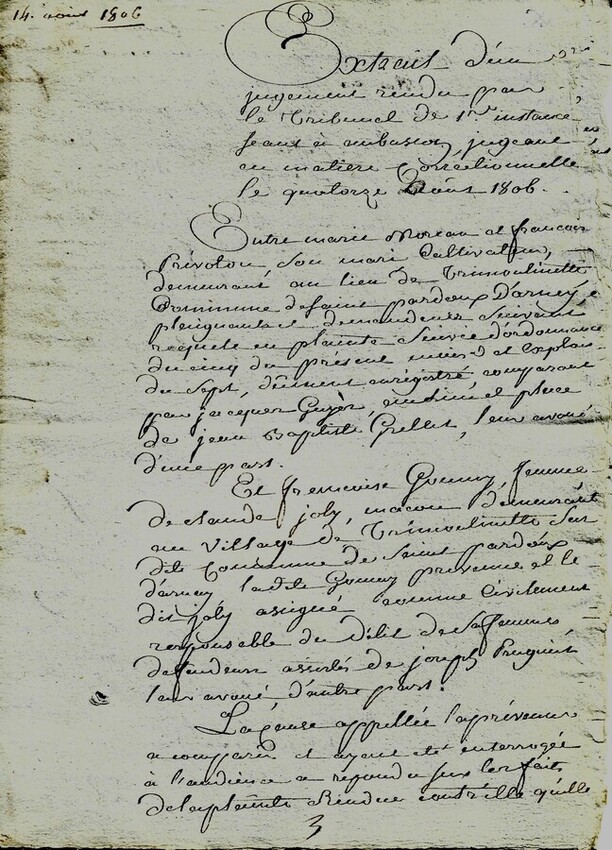 14. aout 1806
Extrait d'un
jugement rendu par
le Tribunal de 1re instance
seant à aubusson, jugeant
en matière Correctionnelle
le quatorze aout 1806.
Entre marie Moreau et francois
Prévotou son mari Cultivateur,
demeurant au lieu de Trimoulinette
Commune de saint pardoux D'arney,
plaignants et demandeurs suivant
requete en plainte suivie d'ordonnance
du cinq du présent mois et exploit
du sept, düment enrégistré comparant
par jacques Guyès, au lieu et place
de jean Baptiste Grellet, leur avoué
d'une part.
Et francoise Goumy, femme
de claude joly, macon demeurant
au village de Trimoulinette sur
dite Commune de saint pardoux
d'arney ladite Goumy prévenue et le
dit joly assigné comme Civilement
responsable du Délit de sa femme
defendeurs assistés de joseph
leur avoué d'autre part.
La Cause appellée la prévenue
a comparu et ayant eté interrogée
à l'audience a repondu sur les faits
de la plainte Rendue contr'elle qu'elle
3